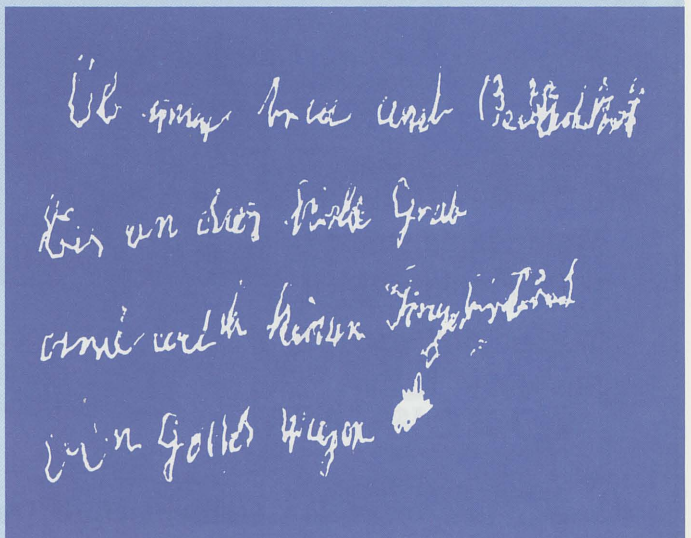 Üb immer treu und Redlichkeit
Bis an dein kühles Grab
und weiche keinen Fingerbreit
von Gottes Wegen